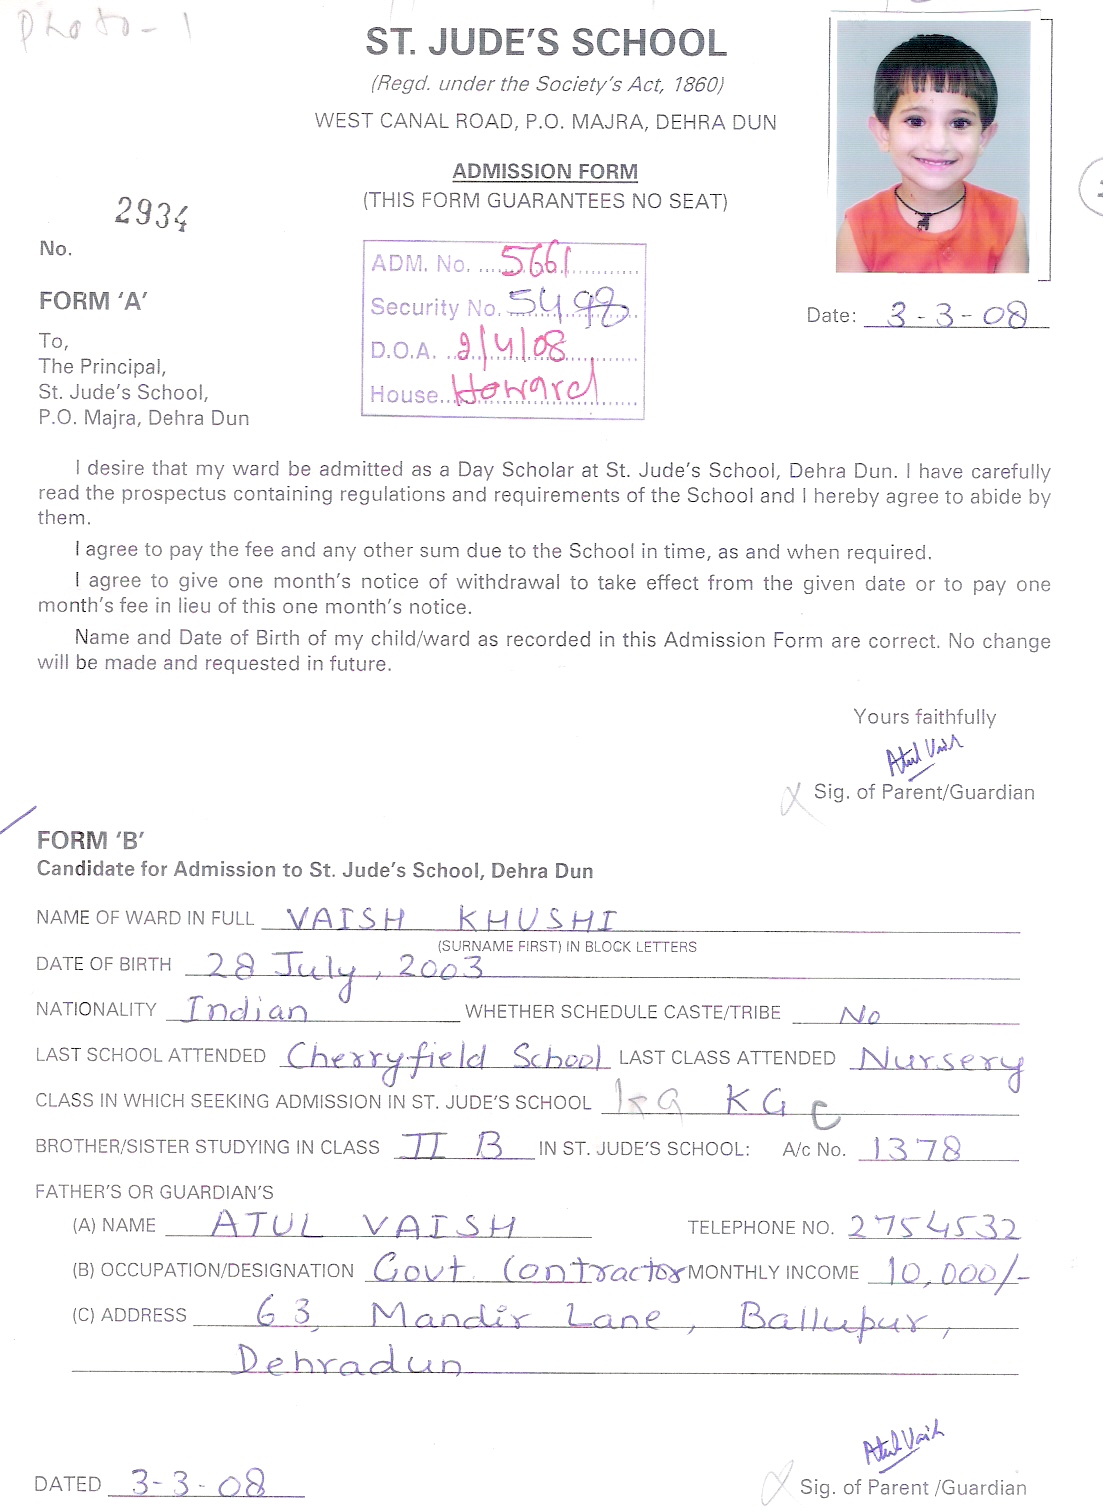 Photo - 1
ST. JUDE'S SCHOOL
(Regd. under the Society's Act, 1860)
WEST CANAL ROAD, P.O. MAJRA, DEHRA DUN
ADMISSION FORM
(THIS FORM GUARANTEES NO SEAT)
2934
No.
ADM. No. 5661
Security No. 5498
D.O.A. 2/4/08
House Howard
FORM 'A'
Date: 3-3-08
To,
The Principal,
St. Jude's School,
P.O. Majra, Dehra Dun
I desire that my ward be admitted as a Day Scholar at St. Jude's School, Dehra Dun. I have carefully
read the prospectus containing regulations and requirements of the School and I hereby agree to abide by
them.
I agree to pay the fee and any other sum due to the School in time, as and when required.
I agree to give one month's notice of withdrawal to take effect from the given date or to pay one
month's fee in lieu of this one month's notice.
Name and Date of Birth of my child/ward as recorded in this Admission Form are correct. No change
will be made and requested in future.
Yours faithfully
Atul Vaish
Sig. of Parent/Guardian
FORM 'B'
Candidate for Admission to St. Jude's School, Dehra Dun
NAME OF WARD IN FULL VAISH KHUSHI
(SURNAME FIRST) IN BLOCK LETTERS
DATE OF BIRTH 28 July, 2003
NATIONALITY Indian WHETHER SCHEDULE CASTE/TRIBE No
LAST SCHOOL ATTENDED Cherryfield School LAST CLASS ATTENDED Nursery
CLASS IN WHICH SEEKING ADMISSION IN ST. JUDE'S SCHOOL KG KG C
BROTHER/SISTER STUDYING IN CLASS II B IN ST. JUDE'S SCHOOL: A/c No. 1378
FATHER'S OR GUARDIAN'S
(A) NAME ATUL VAISH TELEPHONE NO. 2754532
(B) OCCUPATION/DESIGNATION Govt. Contractor MONTHLY INCOME 10,000/-
(C) ADDRESS 63, Mandir Lane, Ballupur,
Dehradun
Atul Vaish
DATED 3-3-08 Sig. of Parent /Guardian